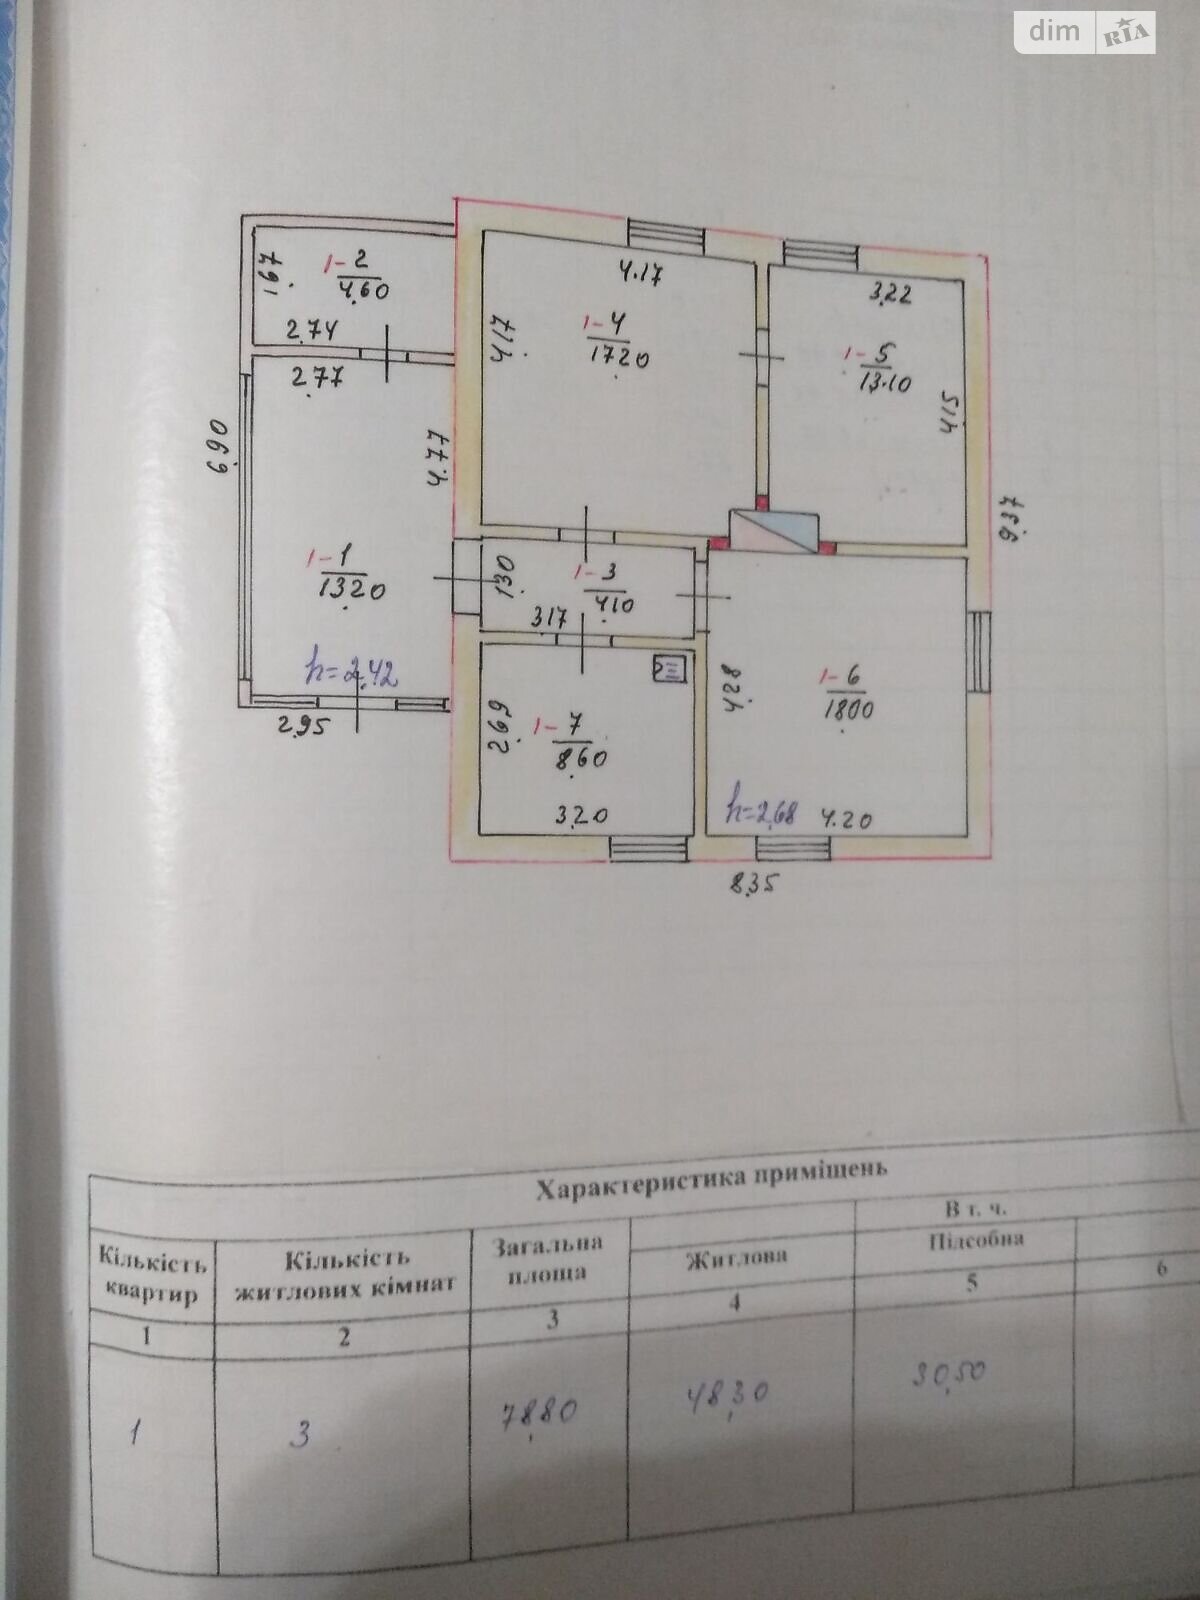 dim RIA
1-2
4.60
1.67
2.74
2.77
4.77
6.90
1-1
13.20
h=2.42
2.95
4.17
4.17
1-4
17.20
3.22
1-5
13.10
4.15
9.37
1.30
1-3
4.10
3.17
1-7
8.60
2.69
3.20
4.28
1-6
18.00
h=2.68
4.20
8.35
Характеристика приміщень
Кількість квартир
Кількість житлових кімнат
Загальна площа
В т. ч.
Житлова
Підсобна
1 2 3 4 5 6
1 3 78,80 48,30 30,50